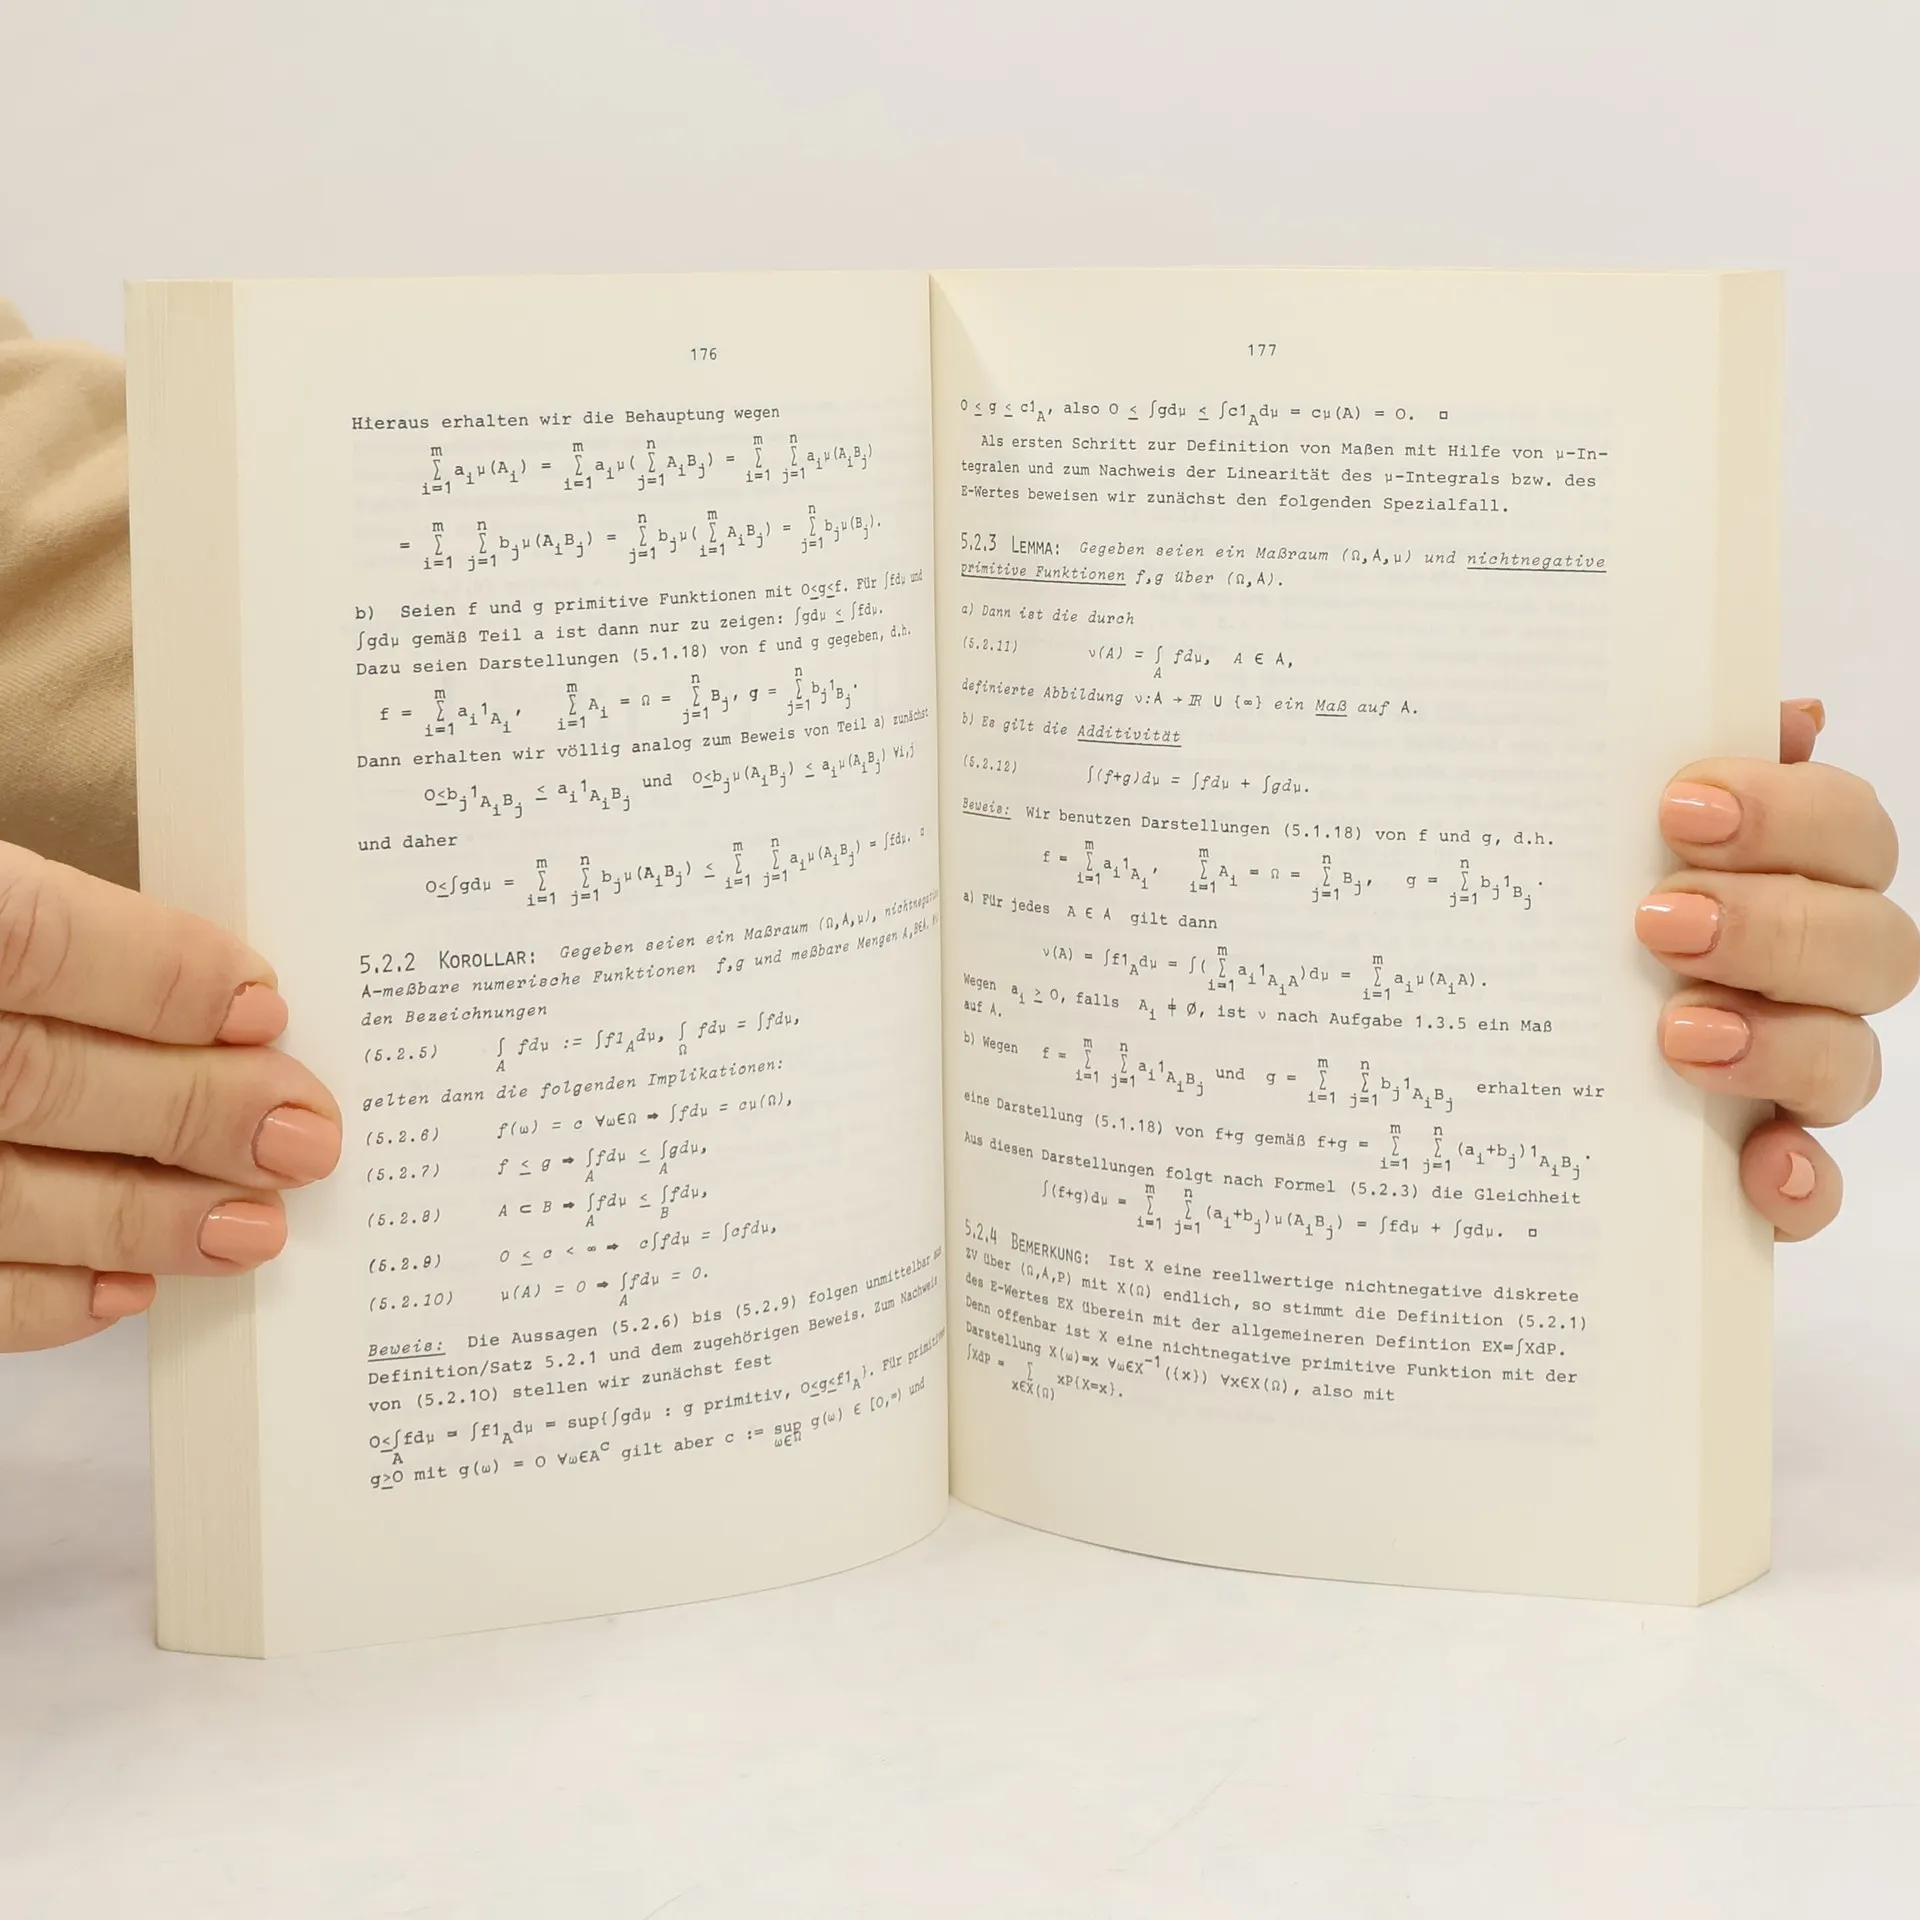 176
Hieraus erhalten wir die Behauptung wegen
m∑i=1 a_i μ(A_i) = m∑i=1 a_i μ( n∑j=1 A_i B_j) = m∑i=1 n∑j=1 a_i μ(A_i B_j)
= m∑i=1 n∑j=1 b_j μ(A_i B_j) = n∑j=1 b_j μ( m∑i=1 A_i B_j) = n∑j=1 b_j μ(B_j).
b) Seien f und g primitive Funktionen mit 0≤g≤f. Für ∫fdμ und
∫gdμ gemäß Teil a ist dann nur zu zeigen: ∫gdμ ≤ ∫fdμ.
Dazu seien Darstellungen (5.1.18) von f und g gegeben, d.h.
f = m∑i=1 a_i 1_{A_i}, m∑i=1 A_i = Ω = n∑j=1 B_j, g = n∑j=1 b_j 1_{B_j}.
Dann erhalten wir völlig analog zum Beweis von Teil a) zunächst
0≤b_j 1_{A_i B_j} ≤ a_i 1_{A_i B_j} und 0≤b_j μ(A_i B_j) ≤ a_i μ(A_i B_j) ∀i,j
und daher
0≤∫gdμ = m∑i=1 n∑j=1 b_j μ(A_i B_j) ≤ m∑i=1 n∑j=1 a_i μ(A_i B_j) = ∫fdμ. □
5.2.2 KOROLLAR: Gegeben seien ein Maßraum (Ω,A,μ), nichtnegative
A-meßbare numerische Funktionen f,g und meßbare Mengen A,B∈A.
den Bezeichnungen
(5.2.5) ∫_A fdμ := ∫f1_A dμ, ∫_Ω fdμ = ∫fdμ,
gelten dann die folgenden Implikationen:
(5.2.6) f(ω) = c ∀ω∈Ω ➡ ∫fdμ = cμ(Ω),
(5.2.7) f ≤ g ➡ ∫_A fdμ ≤ ∫_A gdμ,
(5.2.8) A ⊂ B ➡ ∫_A fdμ ≤ ∫_B fdμ,
(5.2.9) 0 ≤ c < ∞ ➡ c∫fdμ = ∫cfdμ,
(5.2.10) μ(A) = 0 ➡ ∫_A fdμ = 0.
Beweis: Die Aussagen (5.2.6) bis (5.2.9) folgen unmittelbar aus
Definition/Satz 5.2.1 und dem zugehörigen Beweis. Zum Nachweis
von (5.2.10) stellen wir zunächst fest
0≤∫_A fdμ = ∫f1_A dμ = sup{∫gdμ : g primitiv, 0≤g≤f1_A}. Für primitive
g≥0 mit g(ω) = 0 ∀ω∈A^C gilt aber c := sup_{ω∈Ω} g(ω) ∈ [0,∞) und
177
0 ≤ g ≤ c1_A, also 0 ≤ ∫gdμ ≤ ∫c1_A dμ = cμ(A) = 0. □
Als ersten Schritt zur Definition von Maßen mit Hilfe von μ-In-
tegralen und zum Nachweis der Linearität des μ-Integrals bzw. des
E-Wertes beweisen wir zunächst den folgenden Spezialfall.
5.2.3 LEMMA: Gegeben seien ein Maßraum (Ω,A,μ) und nichtnegative
primitive Funktionen f,g über (Ω,A).
a) Dann ist die durch
(5.2.11) ν(A) = ∫_A fdμ, A ∈ A,
definierte Abbildung ν:A → ℝ ∪ {∞} ein Maß auf A.
b) Es gilt die Additivität
(5.2.12) ∫(f+g)dμ = ∫fdμ + ∫gdμ.
Beweis: Wir benutzen Darstellungen (5.1.18) von f und g, d.h.
f = m∑i=1 a_i 1_{A_i}, m∑i=1 A_i = Ω = n∑j=1 B_j, g = n∑j=1 b_j 1_{B_j}.
a) Für jedes A ∈ A gilt dann
ν(A) = ∫f1_A dμ = ∫( m∑i=1 a_i 1_{A_i A})dμ = m∑i=1 a_i μ(A_i A).
Wegen a_i ≥ 0, falls A_i ≠ Ø, ist ν nach Aufgabe 1.3.5 ein Maß
auf A.
b) Wegen f = m∑i=1 n∑j=1 a_i 1_{A_i B_j} und g = m∑i=1 n∑j=1 b_j 1_{A_i B_j} erhalten wir
eine Darstellung (5.1.18) von f+g gemäß f+g = m∑i=1 n∑j=1 (a_i+b_j)1_{A_i B_j}.
Aus diesen Darstellungen folgt nach Formel (5.2.3) die Gleichheit
∫(f+g)dμ = m∑i=1 n∑j=1 (a_i+b_j)μ(A_i B_j) = ∫fdμ + ∫gdμ. □
5.2.4 BEMERKUNG: Ist X eine reellwertige nichtnegative diskrete
ZV über (Ω,A,P) mit X(Ω) endlich, so stimmt die Definition (5.2.1)
des E-Wertes EX überein mit der allgemeineren Defintion EX=∫XdP.
Denn offenbar ist X eine nichtnegative primitive Funktion mit der
Darstellung X(ω)=x ∀ω∈X^{-1}({x}) ∀x∈X(Ω), also mit
∫XdP = ∑_{x∈X(Ω)} xP{X=x}.